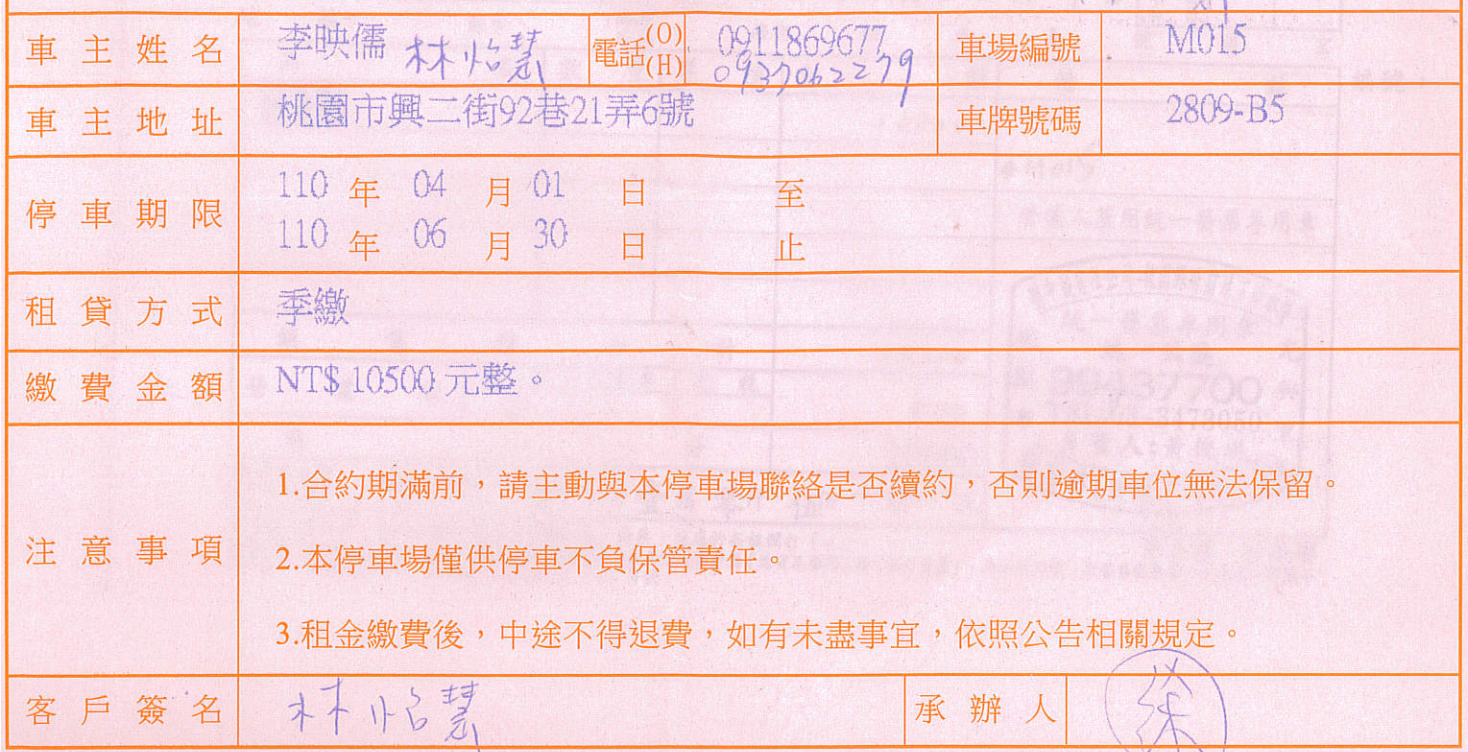 車主姓名 李映儒 林怡慧 電話(O)(H) 0911869677 0937062279 車場編號 M015
車主地址 桃園市興二街92巷21弄6號 車牌號碼 2809-B5
停車期限 110 年 04 月 01 日 至
110 年 06 月 30 日 止
租貸方式 季繳
繳費金額 NT$ 10500 元整。
注意事項
1.合約期滿前，請主動與本停車場聯絡是否續約，否則逾期車位無法保留。
2.本停車場僅供停車不負保管責任。
3.租金繳費後，中途不得退費，如有未盡事宜，依照公告相關規定。
客戶簽名 林怡慧 承辦人